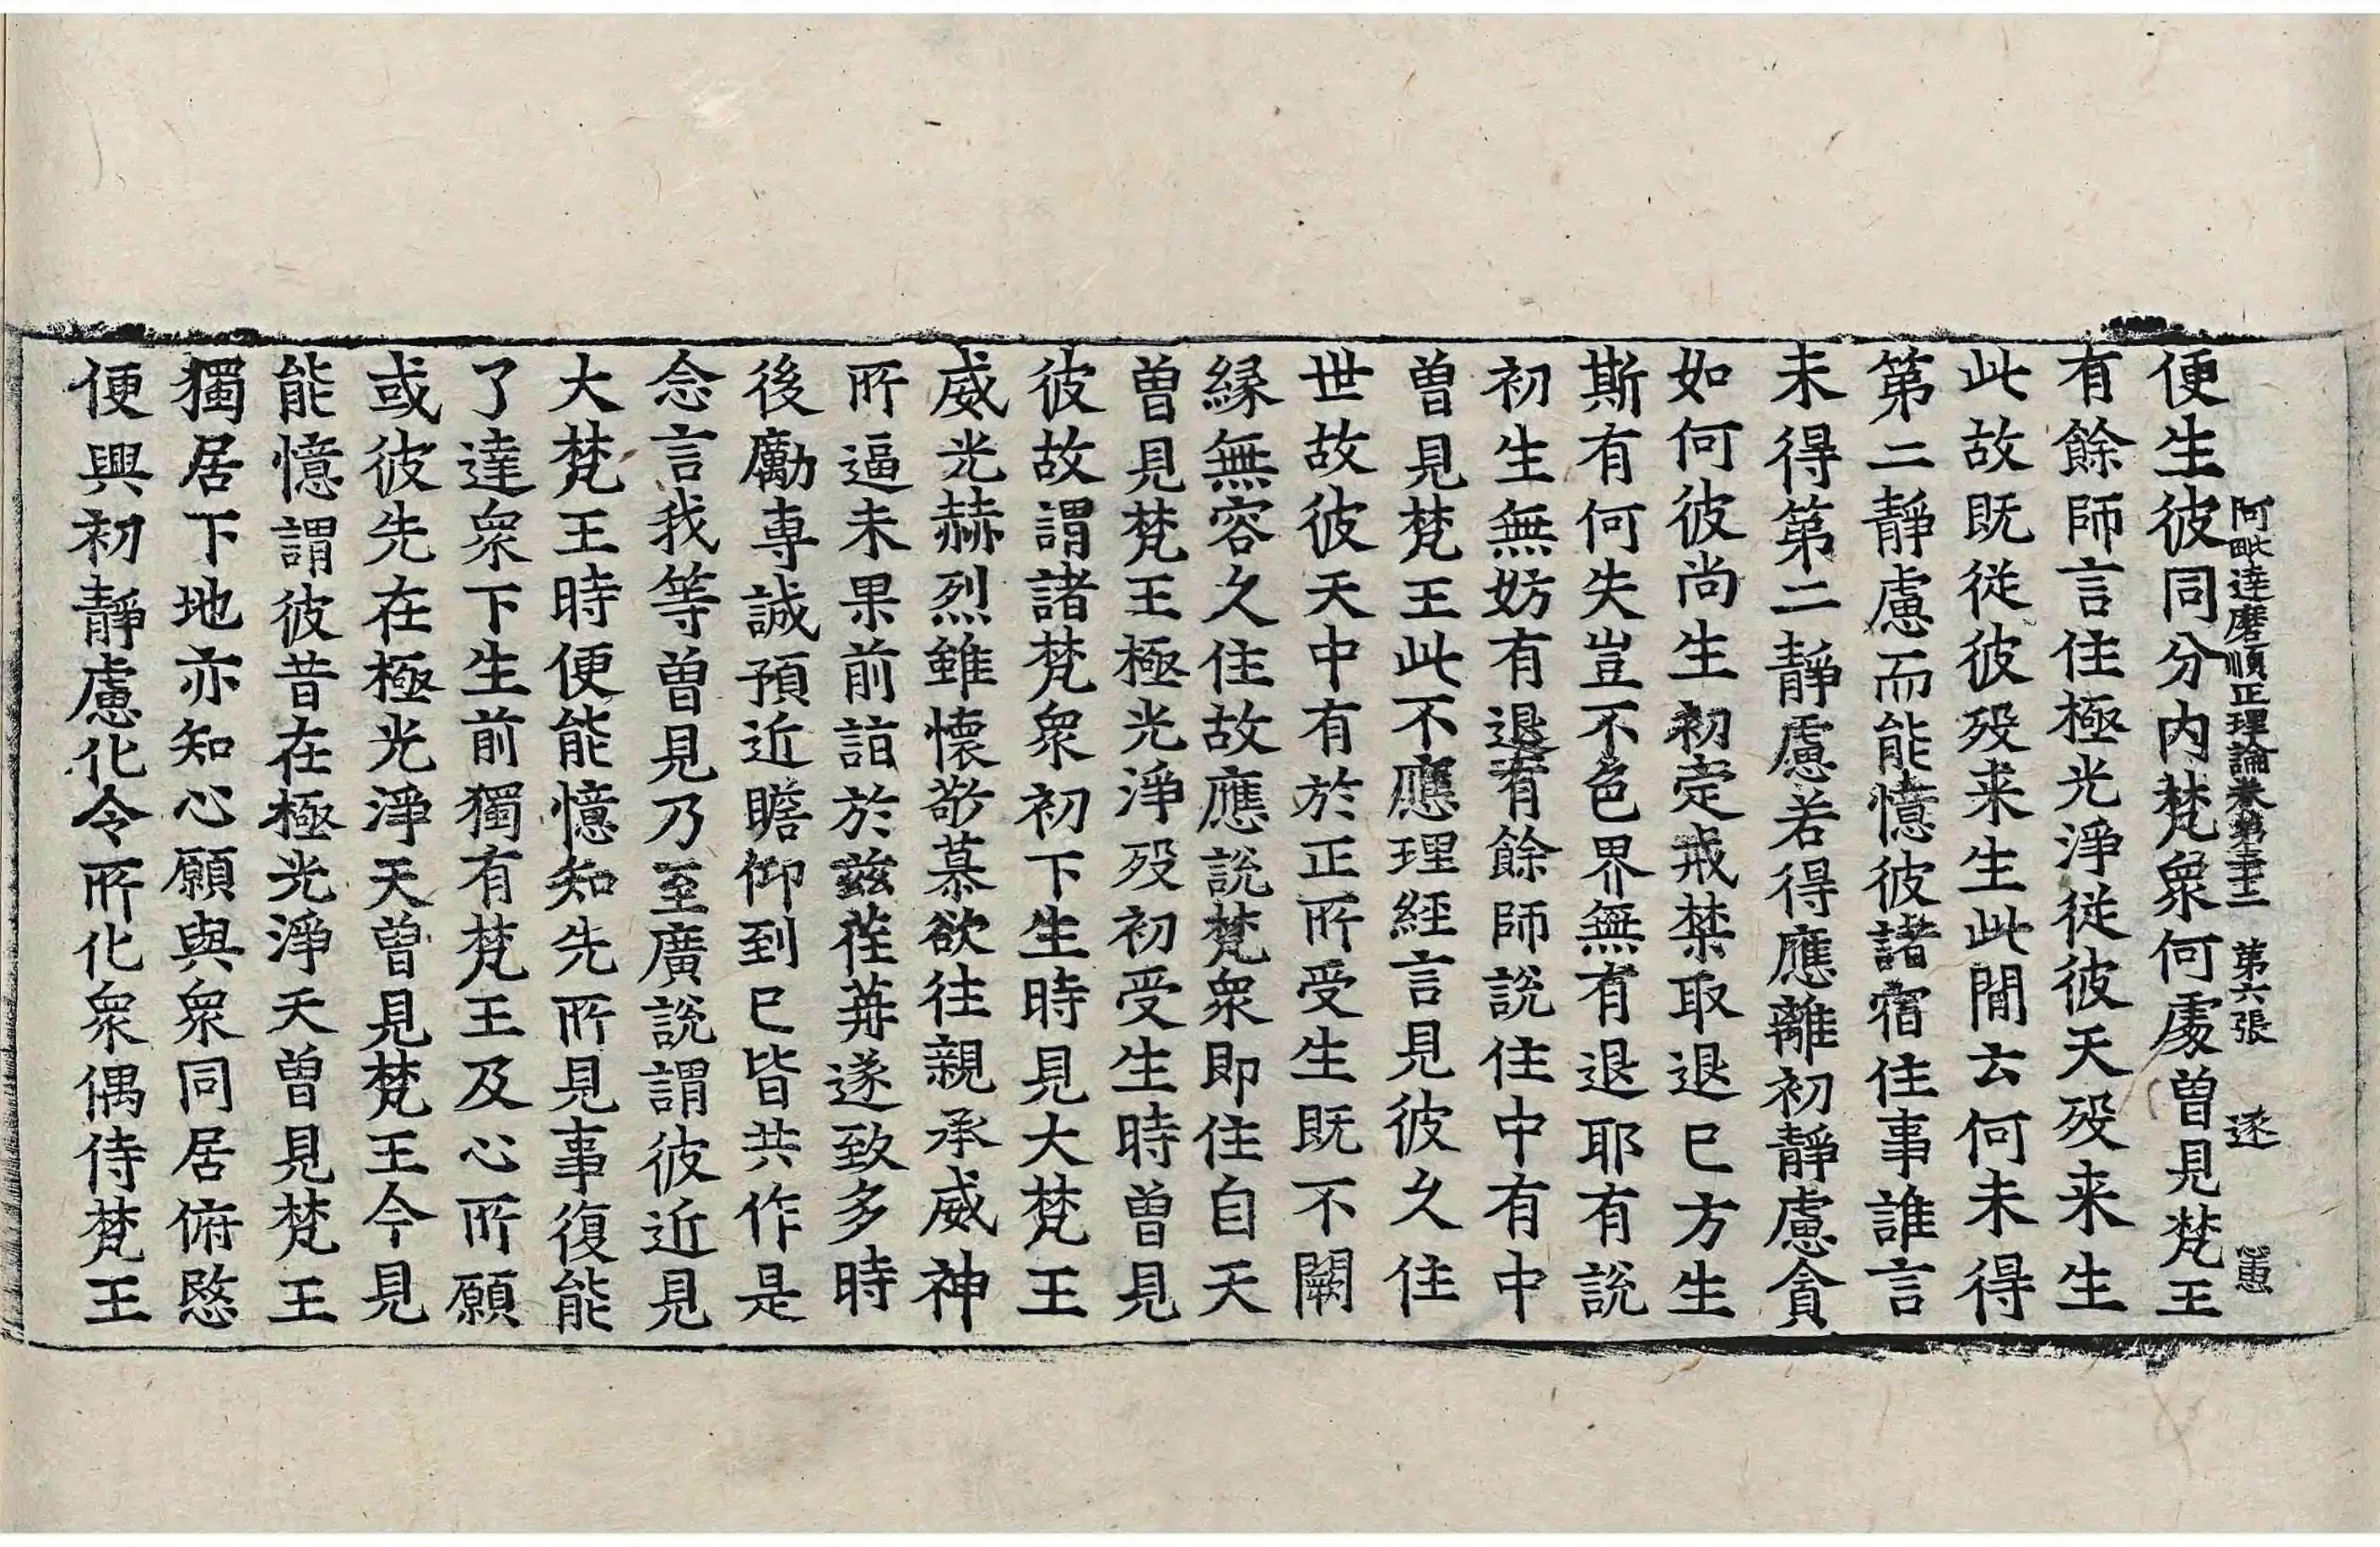 阿毗達磨順正理論卷第二十二　第六張　逐　𢡟
便生彼同分內梵衆何處曾見梵王
有餘師言住極光淨從彼天歿来生
此故既從彼歿来生此間云何未得
第二靜慮而能憶彼諸宿住事誰言
未得第二靜慮若得應離初靜慮貪
如何彼尚生初定戒禁取退已方生
斯有何失豈不色界無有退耶有說
初生無妨有退有餘師說住中有中
曾見梵王此不應理經言見彼久住
世故彼天中有於正所受生既不闕
緣無容久住故應說梵衆即住自天
曾見梵王極光淨歿初受生時曾見
彼故謂諸梵衆初下生時見大梵王
威光赫烈雖懷敬慕欲往親承威神
所逼未果前詣於茲荏苒遂致多時
後勵專誠預近瞻仰到已皆共作是
念言我等曾見乃至廣說謂彼近見
大梵王時便能憶知先所見事復能
了達衆下生前獨有梵王及心所願
或彼先在極光淨天曾見梵王今見
能憶謂彼昔在極光淨天曾見梵王
獨居下地亦知心願與衆同居俯愍
便興初靜慮化令所化衆偶侍梵王